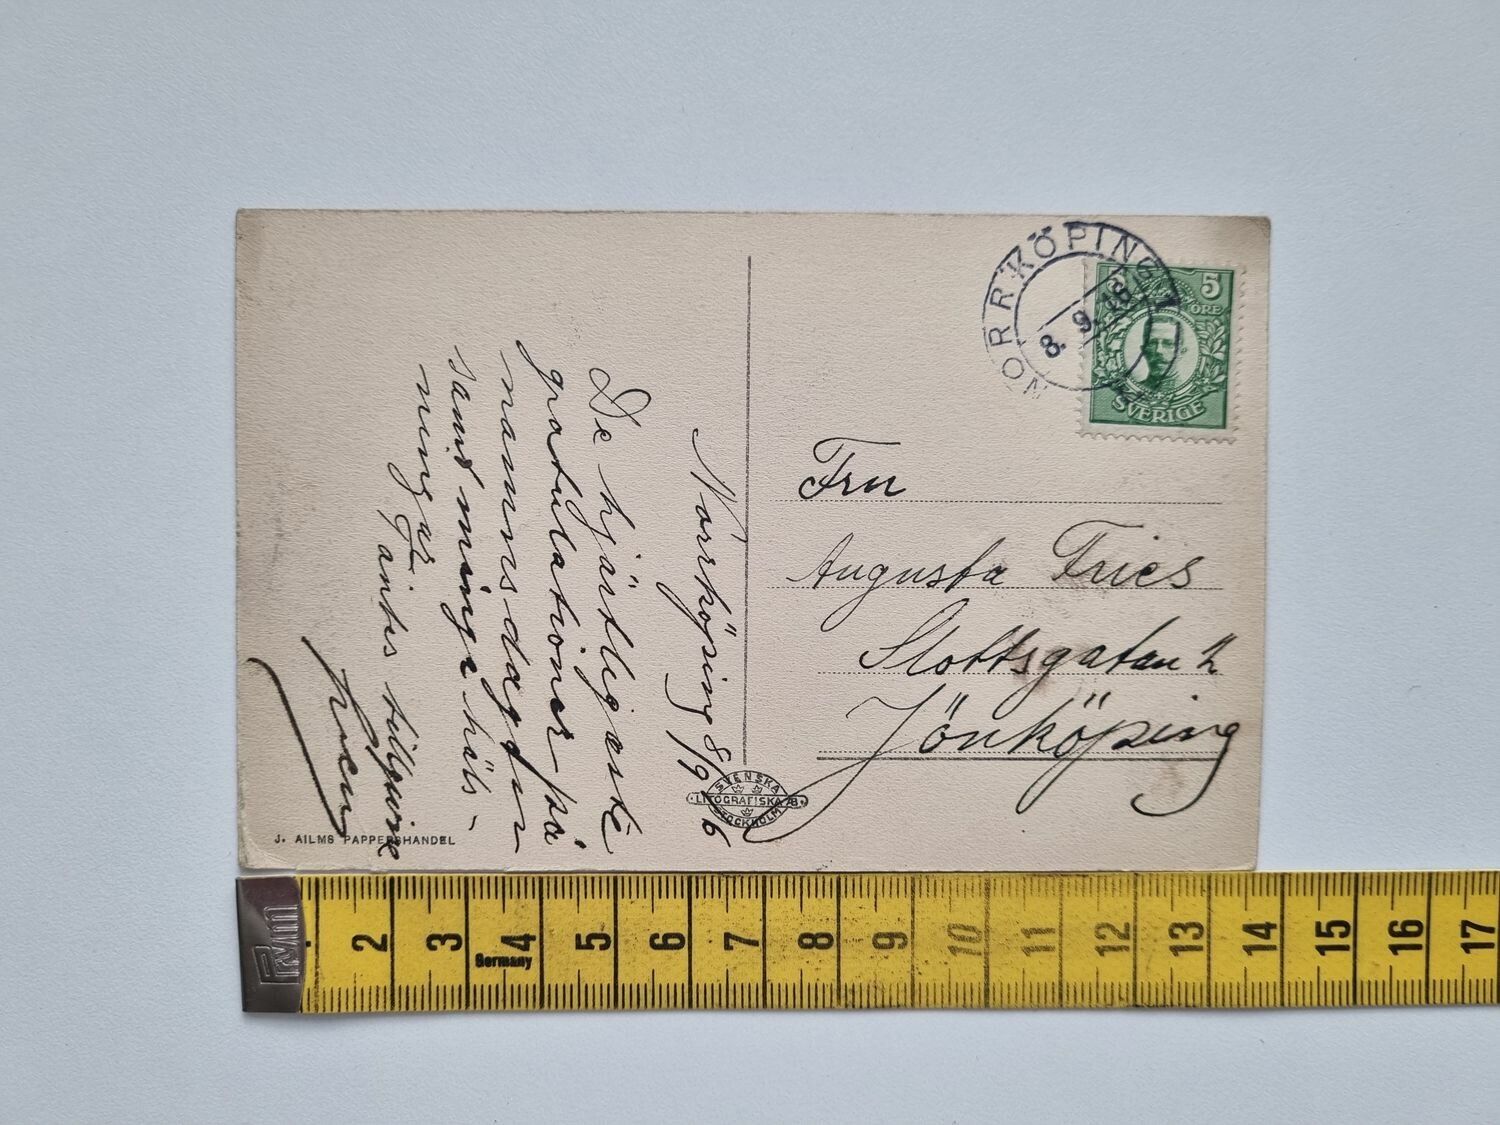 Norrköping 8/9 16
De hjärtligaste
gratulationer på
namnsdagen
samt många häls-
ningar
tillgivne
Fru
Augusta Fries
Slottsgatan 2
Jönköping
NORRKÖPING 1
8. 9. 16
5
ÖRE
SVERIGE
SVENSKA
LITOGRAFISKA AB.
STOCKHOLM
J. AILMS PAPPERSHANDEL
2 3 4 5 6 7 8 9 10 11 12 13 14 15 16 17
Germany